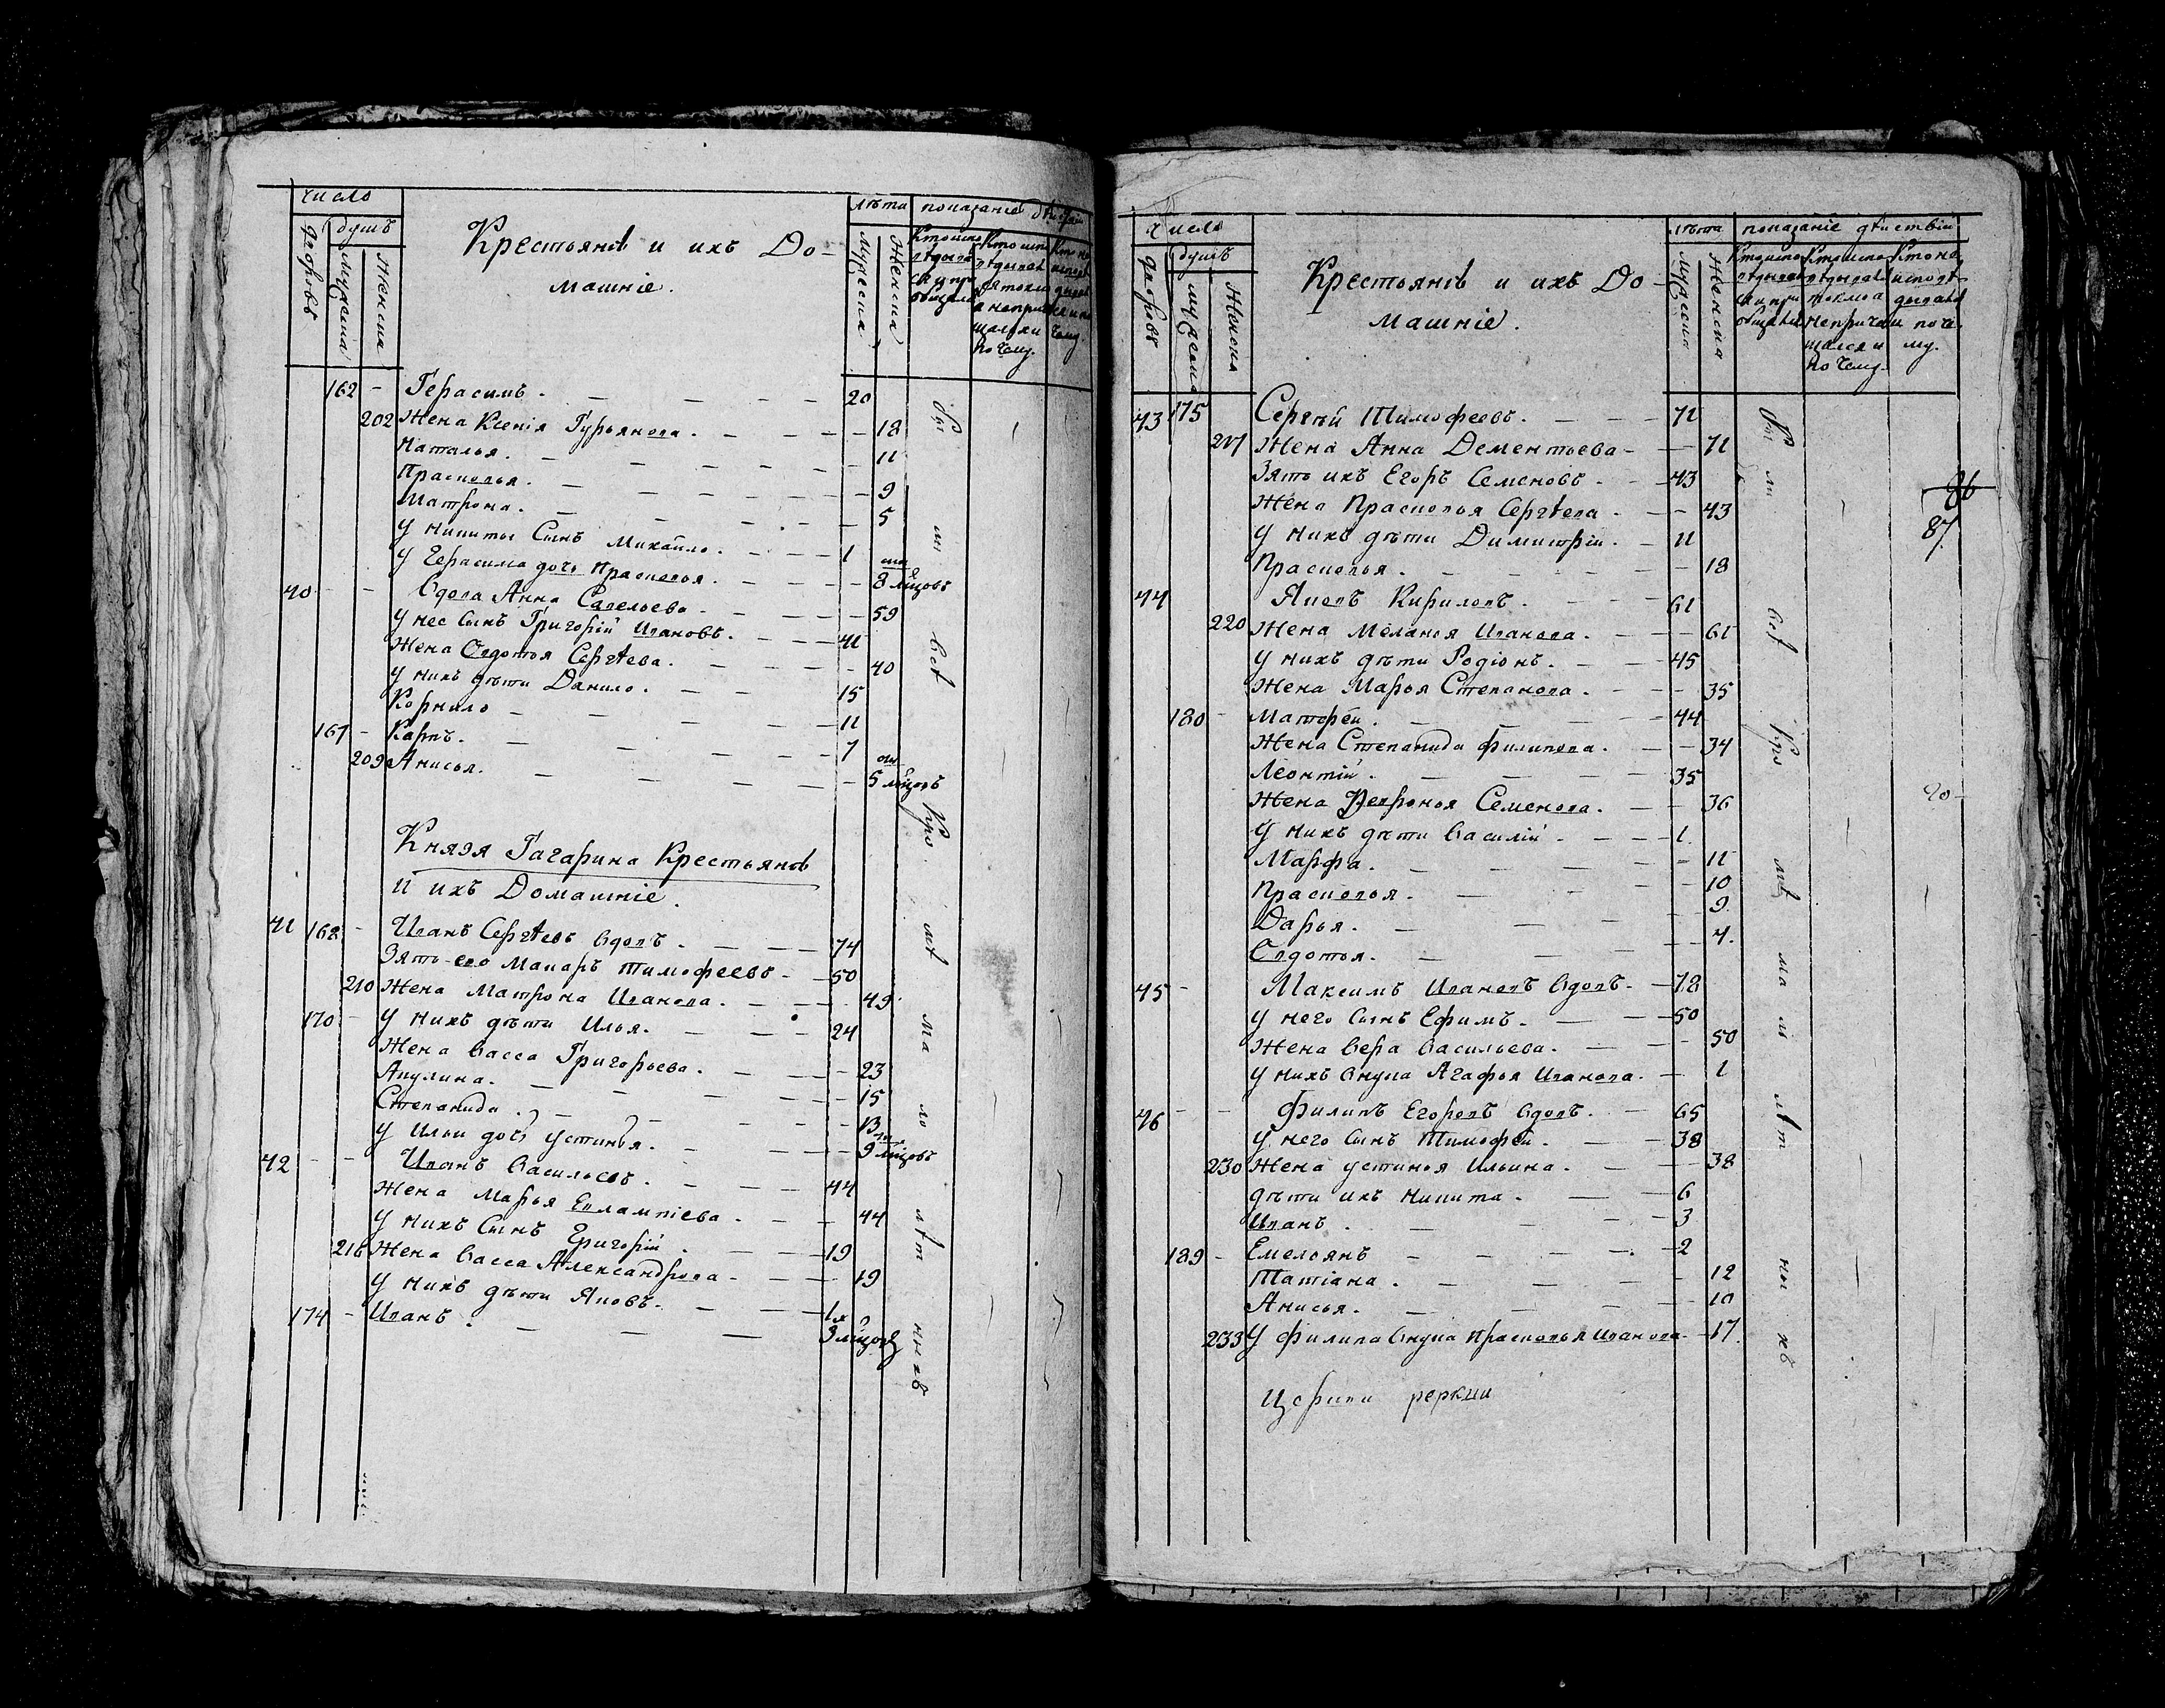 число
душъ
дворовъ
мужеска
женска
Крестьянѣ и ихъ До-
машніе.
лѣта
показаніе дѣйствій
мужеска
женска
162 - Герасимъ. 20
202 Жена Ксенія Гурьянова. 18
Наталья. 11
Прасковья. 9
Матрона. 5
У Никиты Сынъ Михайло. 1
У Герасима дочь Прасковья. 8 мѣсцовъ
40 Вдова Анна Савельева. 59
У нее Сынъ Григорій Ивановъ. 41
Жена Овдотья Сергѣева. 40
У нихъ дѣти Данило. 15
Корнило 11
167 - Карпъ. 7
209 Анисья. 5 мѣсцовъ
Князя Гагарина Крестьянѣ
и ихъ Домашніе.
41 168 - Иванъ Сергѣевъ Вдовъ. 74
Зять его Макаръ Тимофеевъ - 50
210 Жена Матрона Иванова. 49
170 - У нихъ дѣти Илья. 24
Жена Васса Григорьева. 23
Акулина. 15
Степанида. 13
У Ильи дочь Устинья. 9 мѣсцовъ
42 Иванъ Васильевъ. 44
Жена Марья Евлампіева. 44
У нихъ Сынъ Григорій. 19
216 Жена Васса Александрова - 19
У нихъ дѣти Яковъ. 1
174 - Иванъ. 9 мѣсцовъ
число
душъ
дворовъ
мужеска
женска
Крестьянѣ и ихъ До-
машніе.
лѣта
показаніе дѣиствіи
мужеска
женска
86
87
43 175 Сергѣй Тимофеевъ. 71
217 Жена Анна Дементьева - 71
Зять ихъ Егоръ Семеновъ. 43
Жена Прасковья Сергѣева. 43
У нихъ дѣти Димитрій. 11
Прасковья. 18
44 Яковъ Кириловъ. 61
220 Жена Меланья Иванова. 61
У нихъ дѣти Родіонъ. 45
Жена Марья Степанова. 35
180 - Матфѣй. 44
Жена Степанида Филипова. 34
Леонтій. 35
Жена Февронья Семенова. 36
У нихъ дѣти Василій. 1
Марфа. 11
Прасковья. 10
Дарья. 9
Овдотья. 4.
45 Максимъ Ивановъ Вдовъ. 72
У него Сынъ Ефимъ. 50
Жена Вера Васильева. 50
У нихъ Внука Агафья Иванова. 1
46 Филипъ Егоровъ Вдовъ. 65
У него Сынъ Тимофей. 38
230 Жена Устинья Ильина. 38
дѣти ихъ Никита. 6
Иванъ. 3
189 - Емельянъ 2
Татіана. 12
Анисья. 10
233 У Филипа Внука Прасковья Иванова. 17.